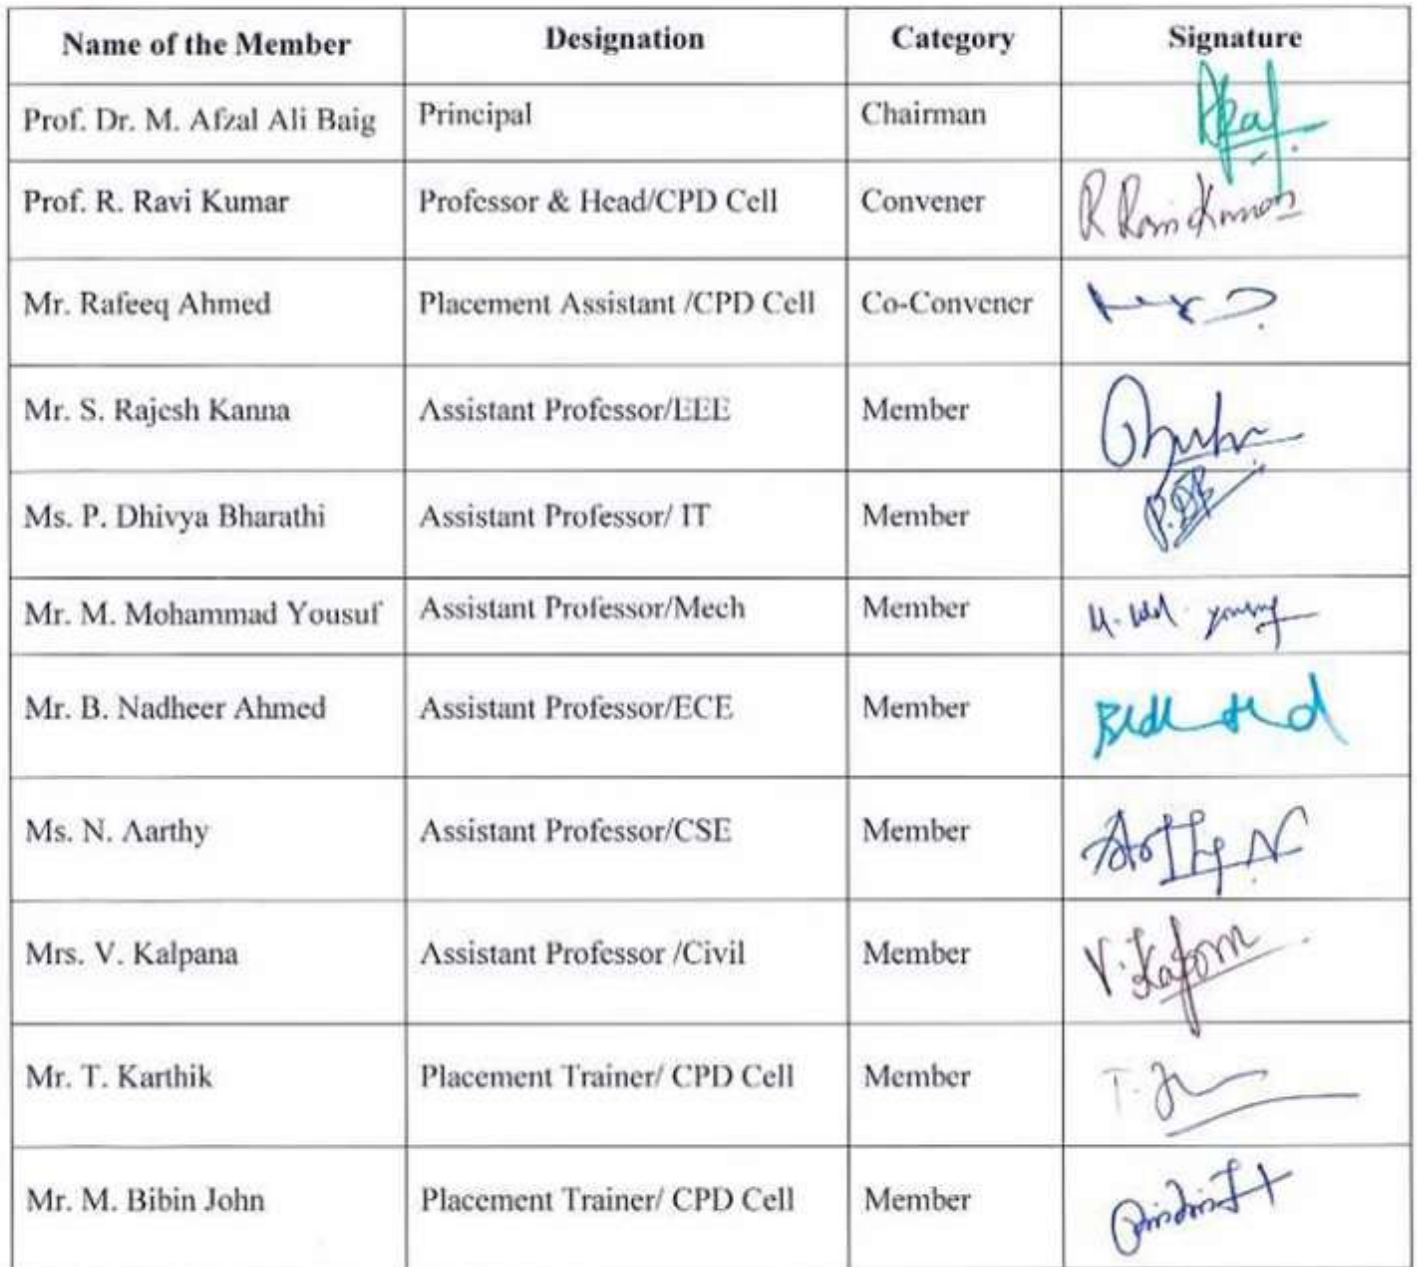 Name of the Member Designation Category Signature
Prof. Dr. M. Afzal Ali Baig Principal Chairman
Prof. R. Ravi Kumar Professor & Head/CPD Cell Convener R Ravi Kumar
Mr. Rafeeq Ahmed Placement Assistant /CPD Cell Co-Convener
Mr. S. Rajesh Kanna Assistant Professor/EEE Member
Ms. P. Dhivya Bharathi Assistant Professor/ IT Member P.DB
Mr. M. Mohammad Yousuf Assistant Professor/Mech Member
Mr. B. Nadheer Ahmed Assistant Professor/ECE Member
Ms. N. Aarthy Assistant Professor/CSE Member
Mrs. V. Kalpana Assistant Professor /Civil Member
Mr. T. Karthik Placement Trainer/ CPD Cell Member
Mr. M. Bibin John Placement Trainer/ CPD Cell Member